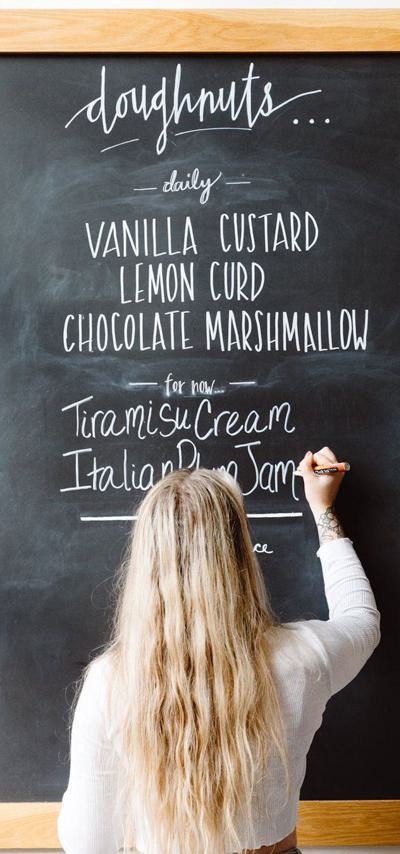 doughnuts...
daily
VANILLA CUSTARD
LEMON CURD
CHOCOLATE MARSHMALLOW
for now...
Tiramisu Cream
Italian Plum Jam